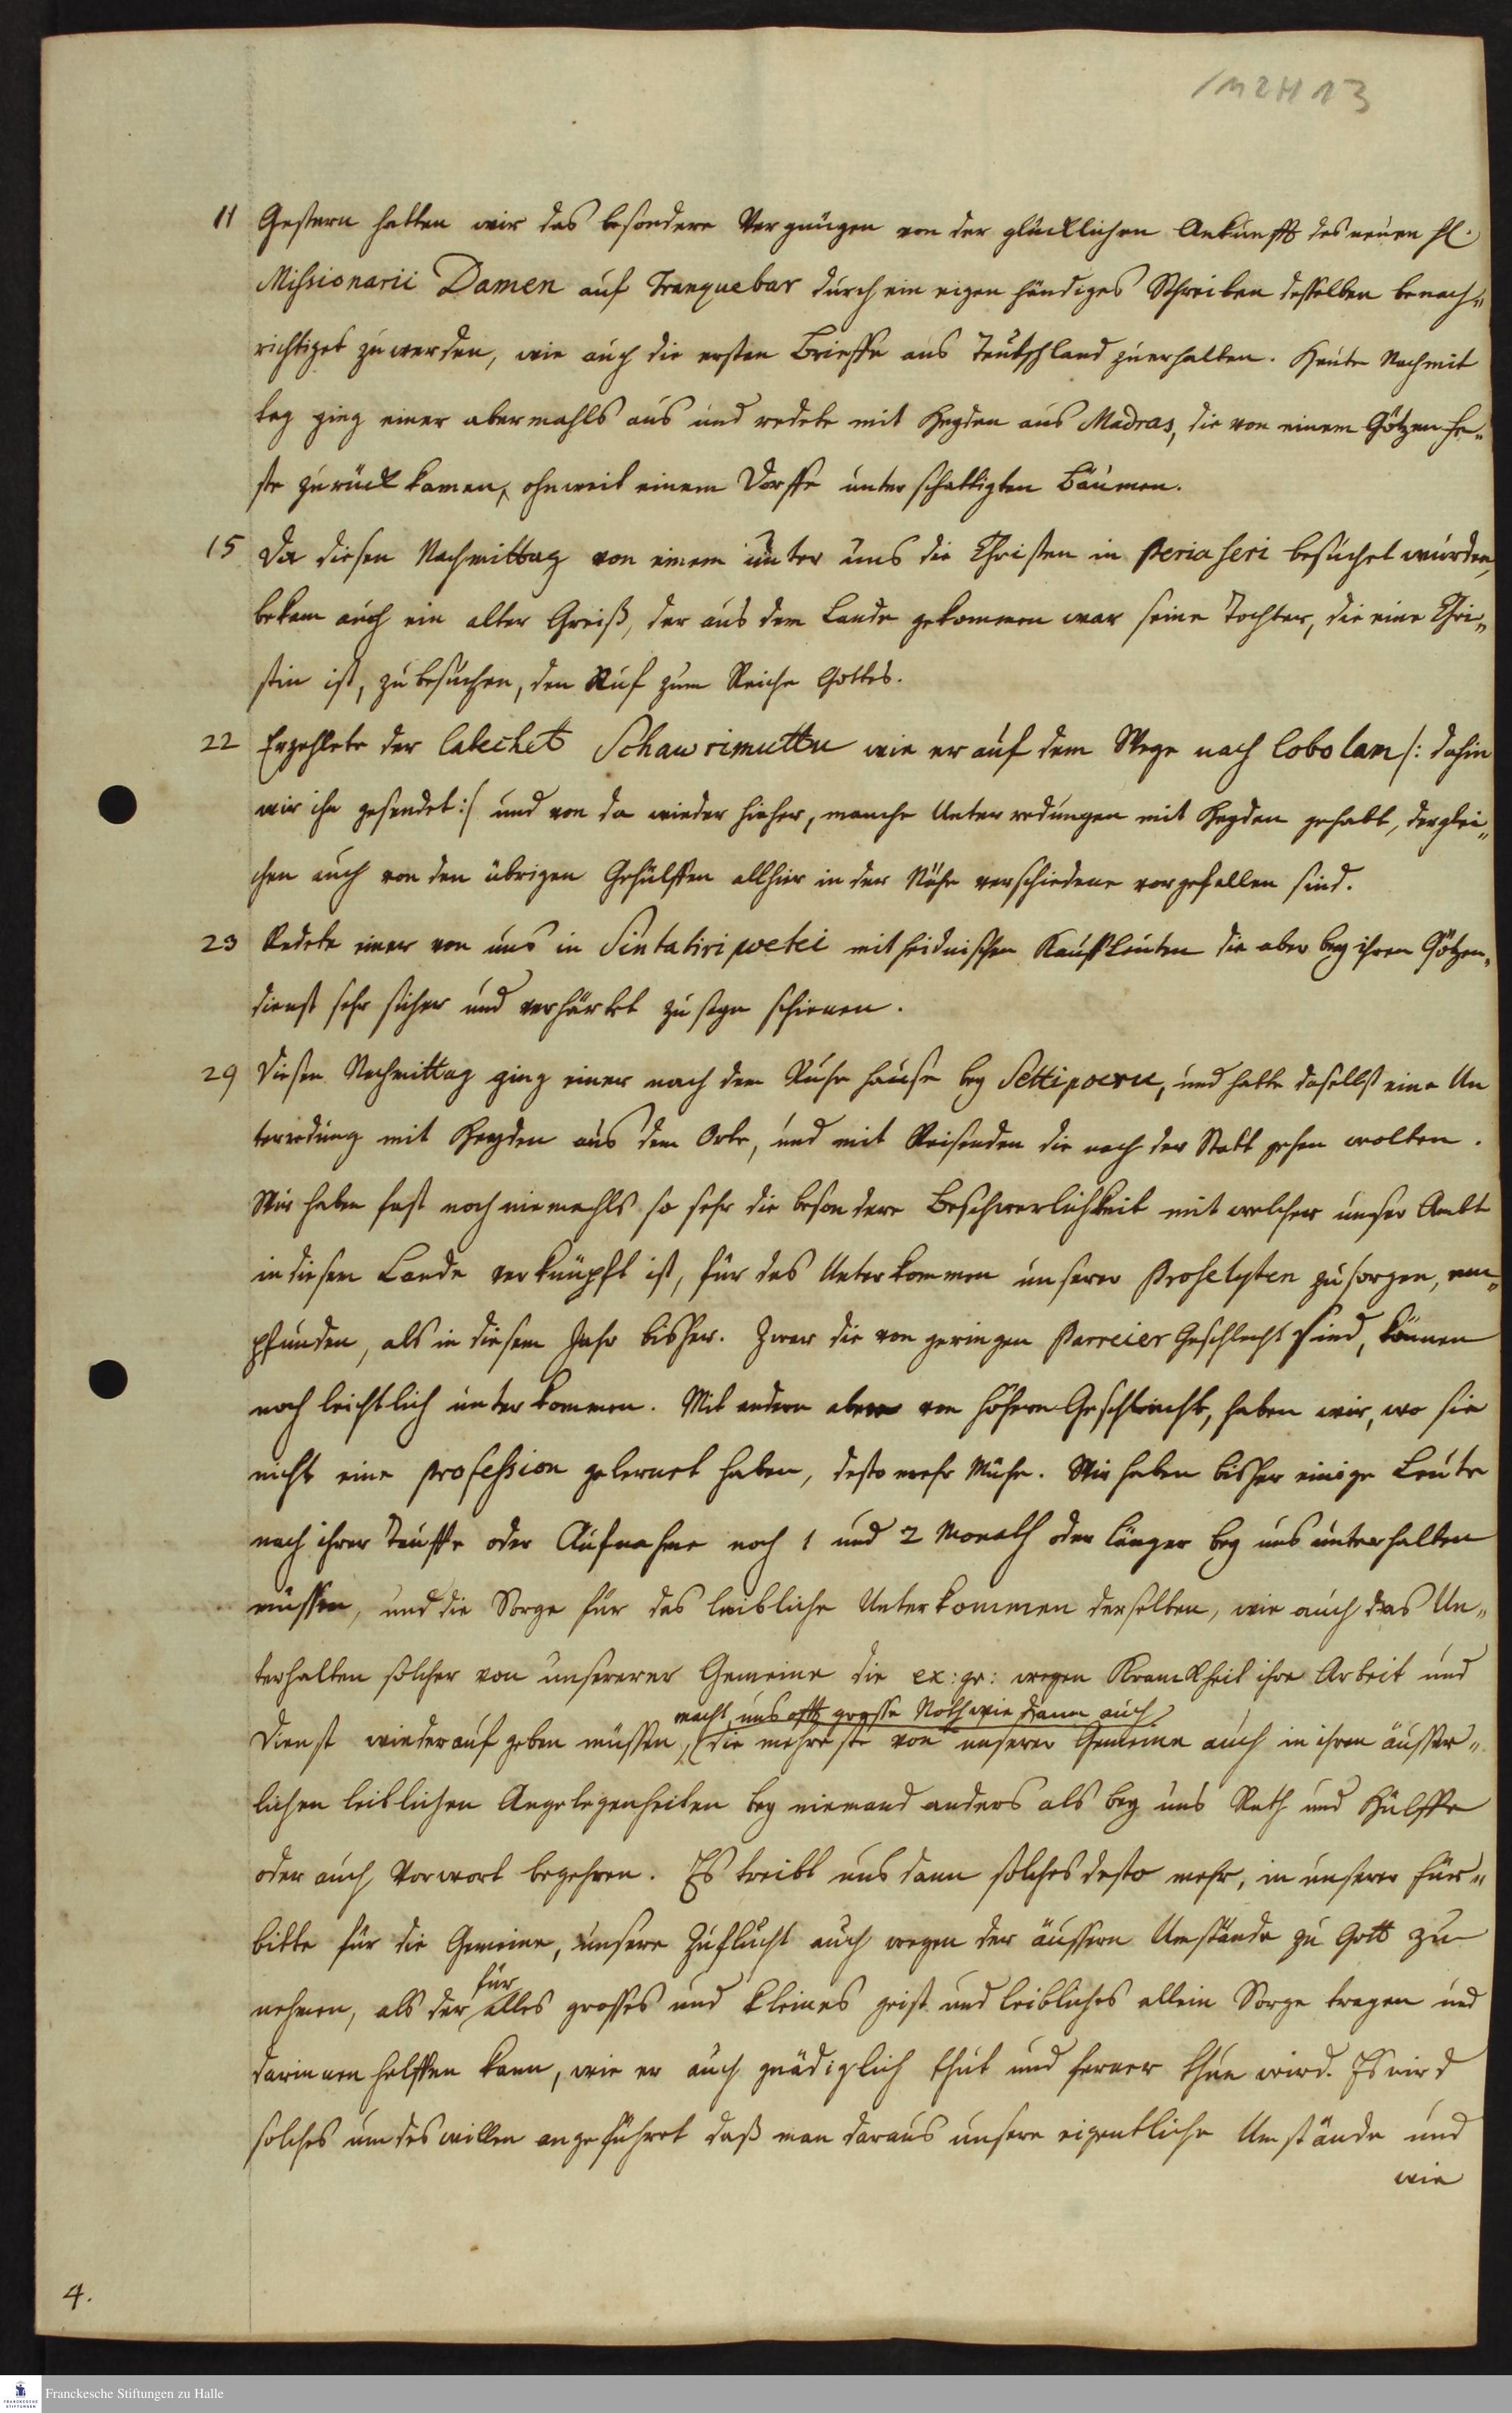 1 M 2 H 13
11 Gestern hatten wir das besondere Vergnügen von der glücklichen Ankunfft des neuen H.
Missionarii Damen auf Tranquebar durch ein eigen händiges Schreiben desselben benach„
richtiget zu werden, wie auch die ersten Brieffe aus Teutschland zu erhalten. Heute Nachmit
tag ging einer abermahls aus und redete mit Heyden aus Madras, die von einem Götzen Fe„
ste zurück kamen, ohnweit einem Dorffe unter schattigten Bäumen.
15 Da diesen Nachmittag von einem unter uns die Christen in Periaseri besuchet wurden,
bekam auch ein alter Greiß, der aus dem Lande gekommen war seine Tochter, die eine Chri„
stin ist, zu besuchen, den Ruf zum Reiche Gottes.
22 Erzehlete der Catechet Schawrimuttu wie er auf dem Wege nach Cobolam /: dahin
wir ihn gesendet :/ und von da wieder hieher, manche Unterredungen mit Heyden gehabt, derglei„
chen auch von den übrigen Gehülffen allhier in der Nähe verschiedene vorgefallen sind.
23 Redete einer von uns in Sintatiripoetei mit heidnischen Kauffleuten die aber bey ihren Götzen„
dienst sehr sicher und verhärtet zu seyn schienen.
29 Diesen Nachmittag ging einer nach dem Ruhe hause bey Settipoeru, und hatte daselbst eine Un
terredung mit Heyden aus dem Orte, und mit Reisenden die nach der Statt gehen wolten.
Wir haben fast noch niemahls so sehr die besondere Beschwerlichkeit mit welcher unser Ambt
in diesem Lande verknüpft ist, für das Unterkommen unserer Proselyten zu sorgen, em„
pfunden, als in diesem Jahr bisher. Zwar die von geringen Parreier Geschlecht sind, können
noch leichtlich unter kommen. Mit andern aber von höherm Geschlecht, haben wir, wo sie
nicht eine profession gelernet haben, desto mehr Mühe. Wir haben bisher einige Leute
nach ihrer Tauffe oder Aufnahme noch 1 und 2 Monath oder länger bey uns unterhalten
müssen, und die Sorge für das leibliche Unterkommen derselben, wie auch das Un„
terhalten solcher von unsererer Gemeine die ex: gr: wegen Kranckheit ihre Arbeit und
macht uns offt grosse Noth wie dann auch
Dienst wieder auf geben müssen, die mehreste von unserer Gemeine auch in ihren äusser„
lichen leiblichen Angelegenheiten bey niemand anders als bey uns Rath und Hülffe
oder auch Vorwort begehren. Es treibt uns dann solches desto mehr, in unserer Für„
bitte für die Gemeine, unsere Zuflucht auch wegen der äussern Umstände zu Gott zu
für
nehmen, als der alles grosses und kleines geist und leibliches allein Sorge tragen und
darinnen helffen kann, wie er auch gnädiglich thut und ferner thun wird. Es wird
solches um des willen angeführet daß man daraus unsere eigentliche Umstände und
wie
4.
FRANCKESCHE STIFTUNGEN
Franckesche Stiftungen zu Halle